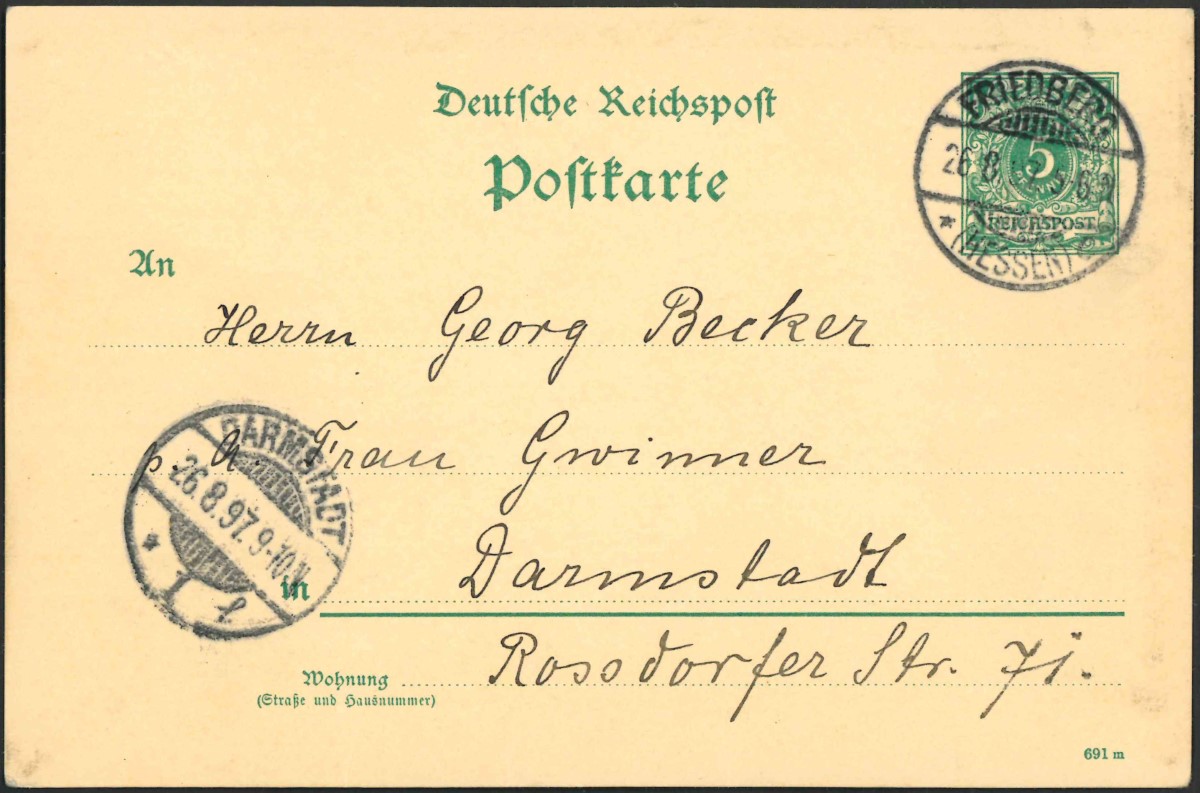 Deutsche Reichspost
Postkarte
FRIEDBERG
26 8
5
REICHSPOST
(HESSEN)
An
Herrn Georg Becker
p. A. Frau Gwinner
DARMSTADT
26.8.97. 9-10N.
in Darmstadt
Wohnung Rossdorfer Str.
(Straße und Hausnummer)
691 m